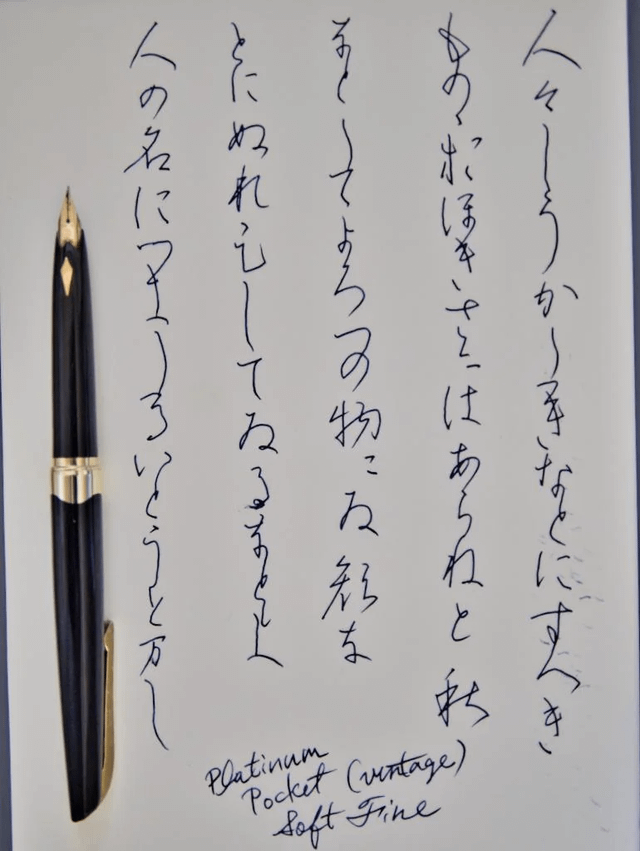 人々しうかたきなとにすへき
ものゝおほきさにはあらねと 秋
なとしてよろつの物にゐ 顔な
とにぬれ足してゐるなとよ
人の名につきたるいとうと万し
Platinum
Pocket (vintage)
Soft Fine